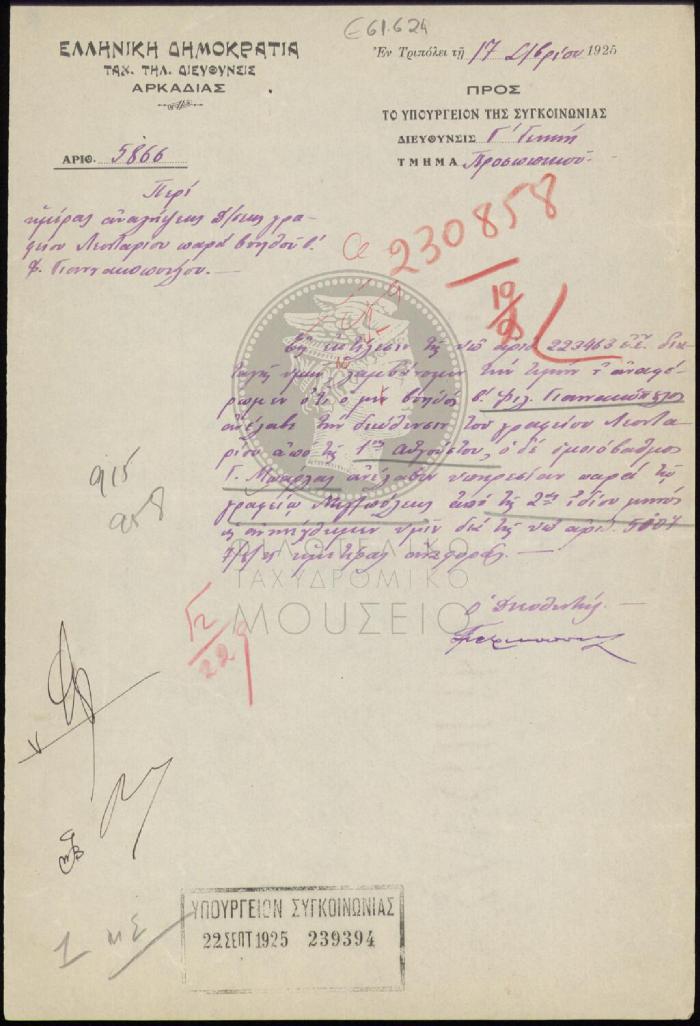 Ε 61.6 24
ΕΛΛΗΝΙΚΗ ΔΗΜΟΚΡΑΤΙΑ
ΤΑΧ. ΤΗΛ. ΔΙΕΥΘΥΝΣΙΣ
ΑΡΚΑΔΙΑΣ
Ἐν Τριπόλει τῇ 17 7βρίου 1925
ΠΡΟΣ
ΤΟ ΥΠΟΥΡΓΕΙΟΝ ΤΗΣ ΣΥΓΚΟΙΝΩΝΙΑΣ
ΔΙΕΥΘΥΝΣΙΣ Γ' Γενική
ΤΜΗΜΑ Προσωπικοῦ
ΑΡΙΘ. 5866
Περί
ἡμέρας ἀναλήψεως δ/σεως γρα-
φείου Λεονταρίου παρά βοηθοῦ β'
Φ. Γιαννακοπούλου.
230858
19/9
Εἰς ἐκτέλεσιν τῆς ὑπ' ἀριθ 223463 ἐ.ἔ. δια-
ταγῆς ὑμῶν λαμβάνομεν τήν τιμήν ν' ἀναφέ-
ρωμεν ὅτι ὁ μέν βοηθός β' Φιλ. Γιαννακόπουλος
ἀνέλαβε τήν διεύθυνσιν τοῦ γραφείου Λεοντα-
ρίου ἀπό τῆς 1ης Αὐγούστου, ὁ δέ ὁμοιόβαθμος
Γ. Μπάρλας ἀνέλαβεν ὑπηρεσίαν παρά τῷ
γραφείῳ Μεγ/πόλεως ἀπό τῆς 2ας ἰδίου μηνός
ὡς ἀνηνέχθημεν ὑμῖν διά τῆς ὑπ' ἀριθ.
ἡμετέρας ἀναφορᾶς.
Ὁ Διευθυντής
915
958
ΦΙΛΟΤΕΛΙΚΟ
ΤΑΧΥΔΡΟΜΙΚΟ
ΜΟΥΣΕΙΟ
12/22 9
ΥΠΟΥΡΓΕΙΟΝ ΣΥΓΚΟΙΝΩΝΙΑΣ
22 ΣΕΠΤ 1925 239394